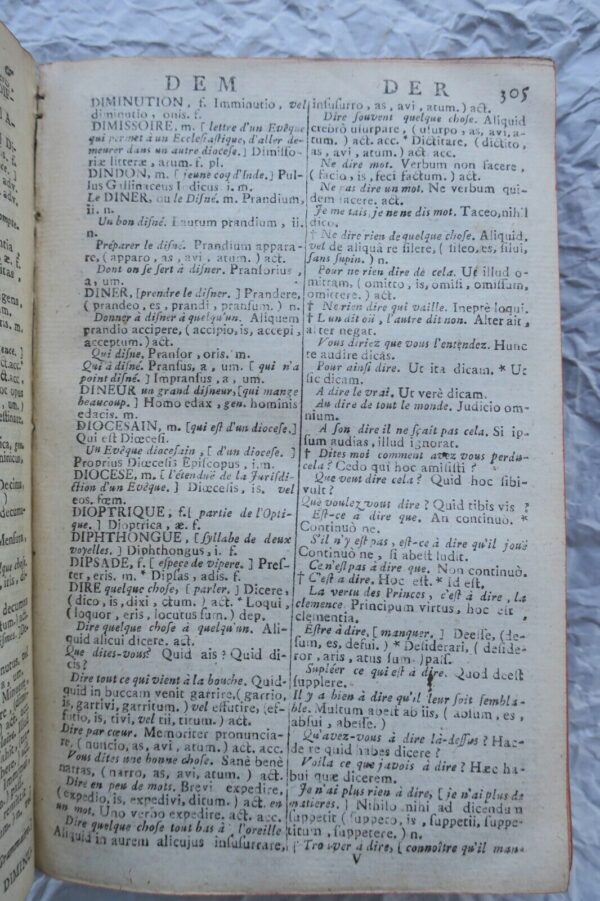 DEM DER 305
DIMINUTION, f. Imminutio, vel
diminutio, onis. f.
DIMISSOIRE, m. [ lettre d'un Evêque
qui permet à un Ecclesiastique, d'aller de-
meurer dans un autre diocese. ] Dimisso-
riæ litteræ, arum. f. pl.
DINDON, m. [ jeune coq d'Inde. ] Pul-
lus Gallinaceus Indicus i. m.
Le DINER, ou le Disné. m. Prandium,
ii. n.
Un bon disné. Lautum prandium, ii.
n.
Préparer le disné. Prandium appara-
re, ( apparo, as, avi, atum. ) act.
Dont on se sert à disner. Pransorius,
a, um.
DINER, [prendre le disner.] Prandere,
( prandeo, es, prandi, pransum. ) n.
Donner à disner à quelqu'un. Aliquem
prandio accipere, ( accipio, is, accepi,
acceptum. ) act.
Qui disne, Pransor, oris. m.
Qui a disné. Pransus, a, um. [ qui n'a
point disné. ] Impransus, a, um.
DINEUR un grand disneur, [qui mange
beaucoup. ] Homo edax, gen. hominis
edacis. m.
DIOCESAIN, m. [qui est d'un diocese.]
Qui est Diœcesi.
Un Evêque diocesain, [ d'un diocese. ]
Proprius Diœcesis Episcopus, i. m.
DIOCESE, m. [ l'étenduë de la Jurisdi-
ction d'un Evêque. ] Diœcesis, is. vel
eos. fœm.
DIOPTRIQUE, f. [ partie de l'Opti-
que. ] Dioptrica, æ. f.
DIPHTHONGUE, [ syllabe de deux
voyelles. ] Diphthongus, i. f.
DIPSADE, f. [ espece de vipere. ] Pres-
ter, eris. m. * Dipsas, adis. f.
DIRE quelque chose, [ parler. ] Dicere,
( dico, is, dixi, ctum. ) act. * Loqui,
( loquor, eris, locutus sum. ) dep.
Dire quelque chose à quelqu'un. Ali-
quid alicui dicere. act.
Que dites-vous? Quid ais ? Quid di-
cis?
Dire tout ce qui vient à la bouche. Quid-
quid in buccam venit garrire, ( garrio,
is, garrivi, garritum. ) vel effutire, (ef-
futio, is, tivi, vel tii, titum. ) act.
Dire par cœur. Memoriter pronuncia-
re. ( nuncio, as, avi, atum. ) act. acc.
Vous dites une bonne chose. Sanè benè
narras, ( narro, as, avi, atum. ) act.
Dire en peu de mots. Brevi expedire,
(expedio, is, expedivi, ditum. ) act. en
un mot. Uno verbo expedire. act. acc.
Dire quelque chose tout bas à l'oreille
Aliquid in aurem alicujus insusurrare,
insusurro, as, avi, atum. ) act.
Dire souvent quelque chose. Aliquid
crebrò usurpare, ( usurpo, as, avi, a-
tum. ) act. acc. * Dictitare, ( dictito,
as, avi, atum. ) act. acc.
Ne dire mot. Verbum non facere,
( facio, is, feci factum. ) act.
Ne pas dire un mot. Ne verbum qui-
dem facere. act.
Je me tais, je ne dis mot. Taceo, nihil
dico.
† Ne dire rien de quelque chose. Aliquid,
vel de aliquâ re silere, ( sileo, es, silui,
sans supin. ) n.
Pour ne rien dire de cela. Ut illud o-
mittam, ( omitto, is, omisi, omissum,
omittere. ) act.
† Ne dire rien qui vaille. Ineptè loqui.
† L'un dit oüi, l'autre dit non. Alter ait,
alter negat.
Vous diriez que vous l'entendez. Hunc
te audire dicas.
Pour ainsi dire. Ut ita dicam. * Ut
sic dicam.
A dire le vrai. Ut verè dicam.
Au dire de tout le monde. Judicio om-
nium.
A son dire il ne sçait pas cela. Si ip-
sum audias, illud ignorat.
† Dites moi comment avez vous perdu
cela ? Cedo qui hoc amisisti ?
Que veut dire cela ? Quid hoc sibi-
vult ?
Que voulez vous dire ? Quid tibis vis ?
Est-ce à dire que. An continuò. *
Continuò ne.
S'il n'y est pas, est-ce à dire qu'il joüe
Continuò ne, si abest ludit.
Ce n'est pas à dire que. Non continuò.
† C'est à dire. Hoc est. * Id est,
La vertu des Princes, c'est à dire, la
clemence. Principum virtus, hoc est,
clementia.
Estre à dire, [ manquer, ] Deesse, (de-
sum, es, defui. ) * Desiderari, ( deside-
ror, aris, atus sum )pass.
Supléer ce qui est à dire. Quod deest
supplere.
Il y a bien à dire qu'il leur soit sembla-
ble. Multum abest ab iis, ( absum, es,
abfui, abesse. )
Qu'avez-vous à dire là-dessus ? Hac-
de re quid habes dicere ?
Voila ce que j'avois à dire ? Hæc ha-
bui quæ dicerem.
Je n'ai plus rien à dire, [ je n'ai plus de
matieres. ] Nihilo nihi ad dicendum
suppetit ( suppeto, is, suppetii, suppe-
titum, suppetere. ) n.
† Trouver à dire, [ connoître qu'il man-
V